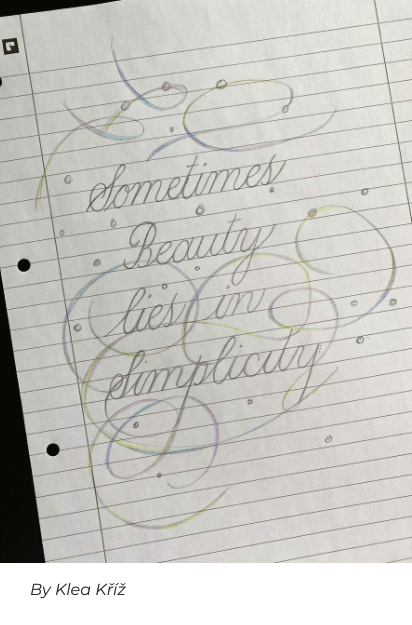 Sometimes
Beauty
lies in
Simplicity
By Klea Kříž